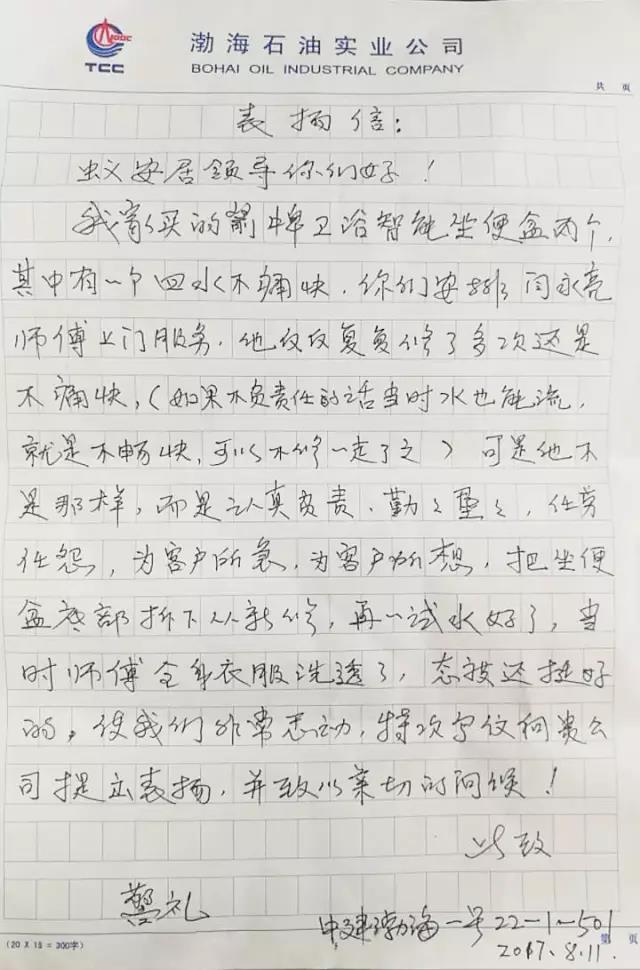 TCC
渤海石油实业公司
BOHAI OIL INDUSTRIAL COMPANY
共 页
表扬信:
蚁安居领导你们好!
我家买的箭牌卫浴智能坐便盆两个,
其中有一个四水不痛快,你们安排闫永亮
师傅上门服务,他反反复复修了多次还是
不痛快,(如果不负责任的话当时水也能流,
就是不畅快,可以不修一走了之)可是他不
是那样,而是认真负责、勤々垦々,任劳
任怨,为客户所急,为客户所想,把坐便
盆底部拆下从新修,再一试水好了,当
时师傅全身衣服洗透了,态度还挺好
的,使我们非常感动,特次写向贵公
司提出表扬,并致以亲切的问候!
此致
敬礼
中建渤海一号22-1-501
2017.8.11.
(20 X 15 = 300字)
第 页